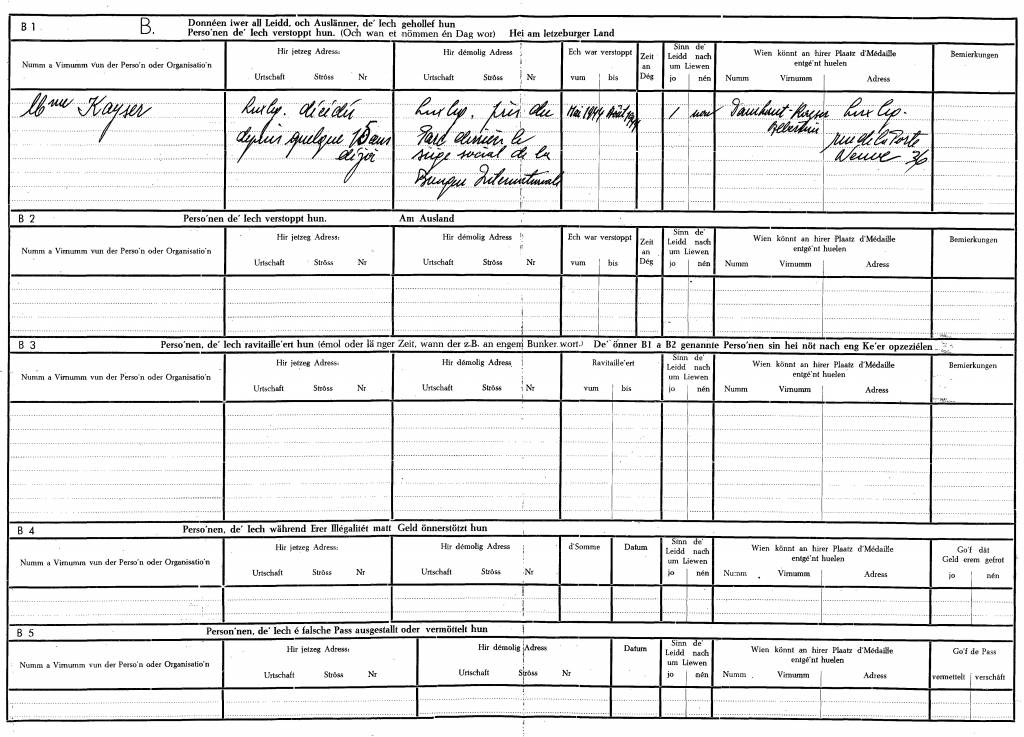 B 1 B. Donnéen iwer all Leidd, och Auslänner, de' Iech gehollef hun
Perso'nen de' Iech verstoppt hun. (Och wan et nömmen én Dag wor) Hei am letzeburger Land
Numm a Virnumm vun der Perso'n oder Organisatio'n
Hir jetzeg Adress:
Urtschaft Ströss Nr
Hir démolig Adress
Urtschaft Ströss Nr
Ech war verstoppt
vum bis
Zeit
an
Dég
Sinn de'
Leidd nach
um Liewen
jo nén
Wien könnt an hirer Plaatz d'Médaille
entgé'nt huelen
Numm Virnumm Adress
Bemierkungen
Mme Kayser
Luxbg. décédé
depuis quelque 15 ans
déjà
Luxbg. près du
Parc derrière le
siège social de la
Banque Internationale
Mai 1944 Août 1944
1 non
Kayser
Albertine
Luxbg.
rue de la Porte
Neuve 36
B 2 Perso'nen de' Iech verstoppt hun. Am Ausland
Numm a Virnumm vun der Perso'n oder Organisatio'n
Hir jetzeg Adress:
Urtschaft Ströss Nr
Hir démolig Adress
Urtschaft Ströss Nr
Ech war verstoppt
vum bis
Zeit
an
Dég
Sinn de'
Leidd nach
um Liewen
jo nén
Wien könnt an hirer Plaatz d'Médaille
entgé'nt huelen
Numm Virnumm Adress
Bemierkungen
B 3 Perso'nen, de' Iech ravitaille'ert hun (émol oder lä nger Zeit, wann der z.B. an engem Bunker wort.) De' önner B1 a B2 genannte Perso'nen sin hei nöt nach eng Ke'er opzeziélen
Numm a Virnumm vun der Perso'n oder Organisatio'n
Hir jetzeg Adress:
Urtschaft Ströss Nr
Hir démolig Adress
Urtschaft Ströss Nr
Ravitaille'ert
vum bis
Sinn de'
Leidd nach
um Liewen
jo nén
Wien könnt an hirer Plaatz d'Médaille
entgé'nt huelen
Numm Virnumm Adress
Bemierkungen
B 4 Perso'nen, de' Iech während Erer Illégalitét matt Geld önnerstötzt hun
Numm a Virnumm vun der Perso'n oder Organisatio'n
Hir jetzeg Adress:
Urtschaft Ströss Nr
Hir démolig Adress
Urtschaft Ströss Nr
d'Somme
Datum
Sinn de'
Leidd nach
um Liewen
jo nén
Wien könnt an hirer Plaatz d'Médaille
entgé'nt huelen
Numm Virnumm Adress
Go'f dât
Geld erem gefrot
jo nén
B 5 Person'nen, de' Iech é falsche Pass ausgestallt oder vermöttelt hun
Numm a Virnumm vun der Perso'n oder Organisatio'n
Hir jetzeg Adress:
Urtschaft Ströss Nr
Hir démolig Adress
Urtschaft Ströss Nr
Datum
Sinn de'
Leidd nach
um Liewen
jo nén
Wien könnt an hirer Plaatz d'Médaille
entgé'nt huelen
Numm Virnumm Adress
Go'f de Pass
vermettelt verschäft